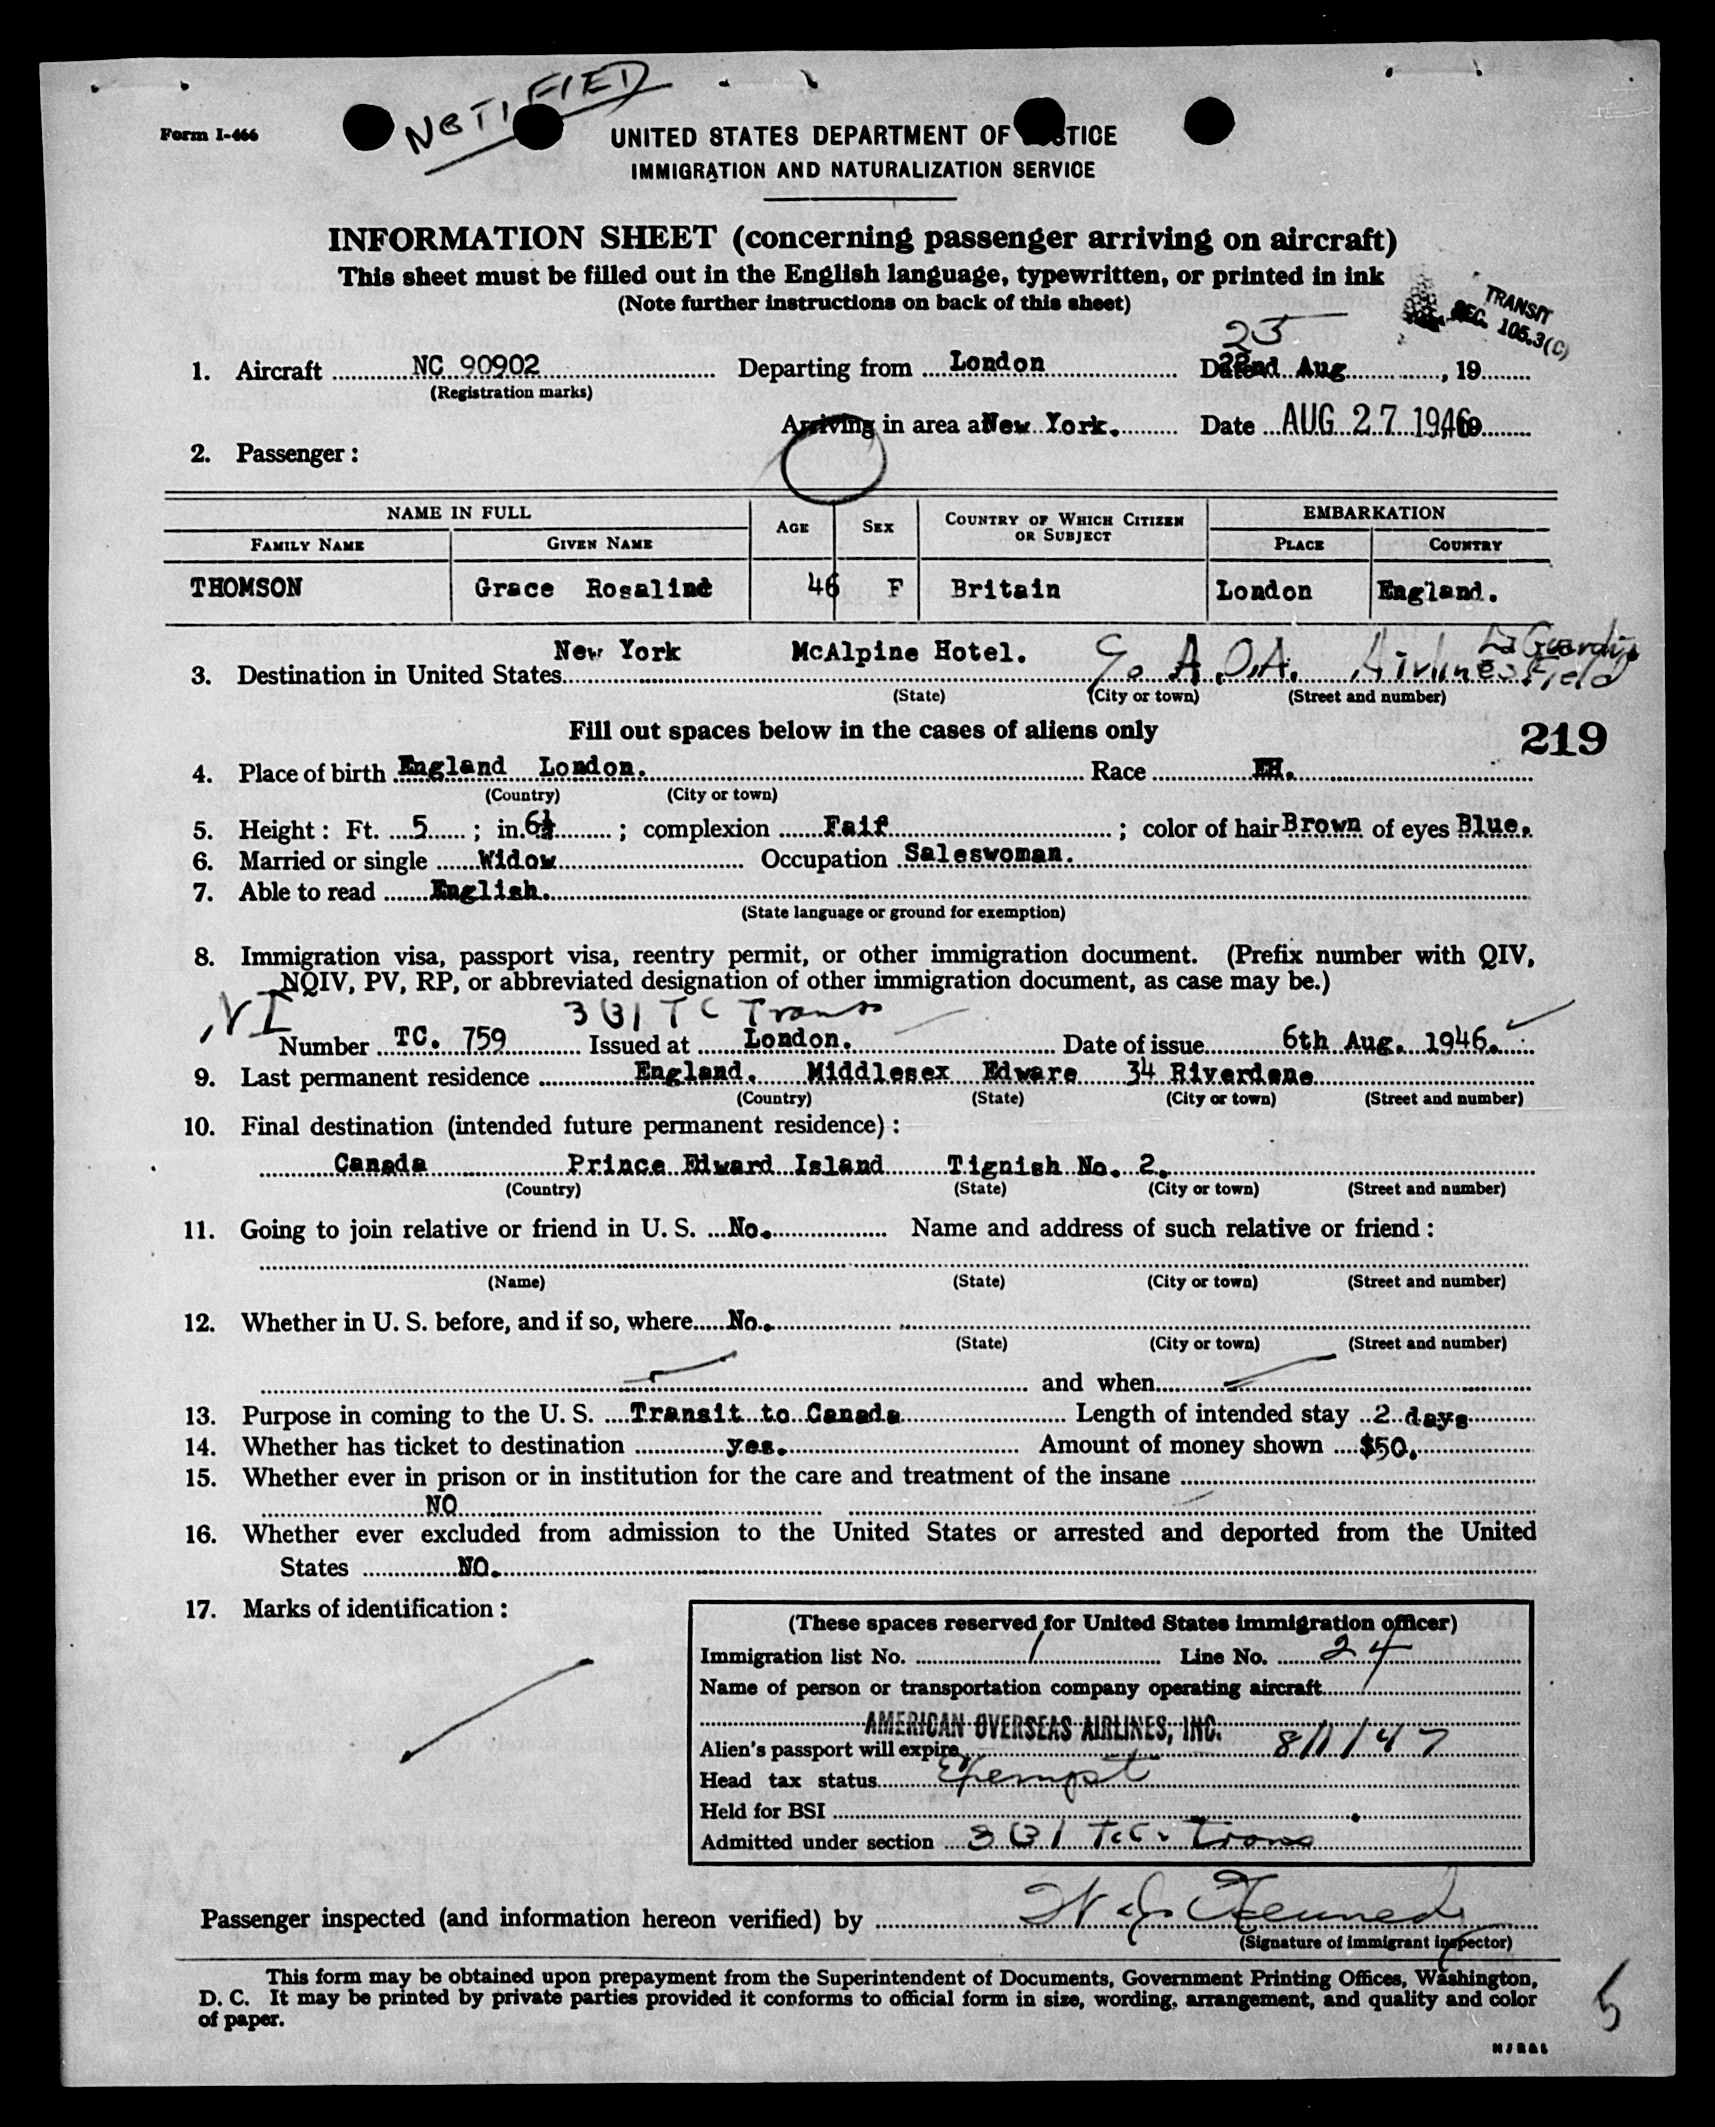 NOTIFIED
Form I-466
UNITED STATES DEPARTMENT OF JUSTICE
IMMIGRATION AND NATURALIZATION SERVICE
INFORMATION SHEET (concerning passenger arriving on aircraft)
This sheet must be filled out in the English language, typewritten, or printed in ink
(Note further instructions on back of this sheet)
TRANSIT
SEC. 105.3(C)
25
1. Aircraft NC 90902 Departing from London Date 22nd Aug, 19
(Registration marks)
Arriving in area at New York. Date AUG 27 1946
2. Passenger:
NAME IN FULL AGE SEX COUNTRY OF WHICH CITIZEN OR SUBJECT EMBARKATION
FAMILY NAME GIVEN NAME PLACE COUNTRY
THOMSON Grace Rosalind 46 F Britain London England.
New York McAlpine Hotel. c/o A.O.A. Airlines La Guardia Field
3. Destination in United States
(State) (City or town) (Street and number)
Fill out spaces below in the cases of aliens only
219
4. Place of birth England London. Race EH.
(Country) (City or town)
5. Height: Ft. 5; in. 6½; complexion Fair; color of hair Brown of eyes Blue.
6. Married or single Widow Occupation Saleswoman.
7. Able to read English.
(State language or ground for exemption)
8. Immigration visa, passport visa, reentry permit, or other immigration document. (Prefix number with QIV,
NQIV, PV, RP, or abbreviated designation of other immigration document, as case may be.)
VI 3(3)1 TC Trans
Number TC. 759 Issued at London. Date of issue 6th Aug. 1946.
9. Last permanent residence England. Middlesex Edware 34 Riverdene
(Country) (State) (City or town) (Street and number)
10. Final destination (intended future permanent residence):
Canada Prince Edward Island Tignish No. 2.
(Country) (State) (City or town) (Street and number)
11. Going to join relative or friend in U. S. No. Name and address of such relative or friend:
(Name) (State) (City or town) (Street and number)
12. Whether in U. S. before, and if so, where No.
(State) (City or town) (Street and number)
and when
13. Purpose in coming to the U. S. Transit to Canada Length of intended stay 2 days
14. Whether has ticket to destination yes. Amount of money shown $50.
15. Whether ever in prison or in institution for the care and treatment of the insane
NO
16. Whether ever excluded from admission to the United States or arrested and deported from the United
States NO.
17. Marks of identification:
(These spaces reserved for United States immigration officer)
Immigration list No. 1 Line No. 24
Name of person or transportation company operating aircraft
AMERICAN OVERSEAS AIRLINES, INC.
Alien's passport will expire 8/1/47
Head tax status Exempt
Held for BSI
Admitted under section 3(3)1 T.C. Trans
Passenger inspected (and information hereon verified) by W J Kennedy
(Signature of immigrant inspector)
This form may be obtained upon prepayment from the Superintendent of Documents, Government Printing Offices, Washington,
D. C. It may be printed by private parties provided it conforms to official form in size, wording, arrangement, and quality and color
of paper.
5